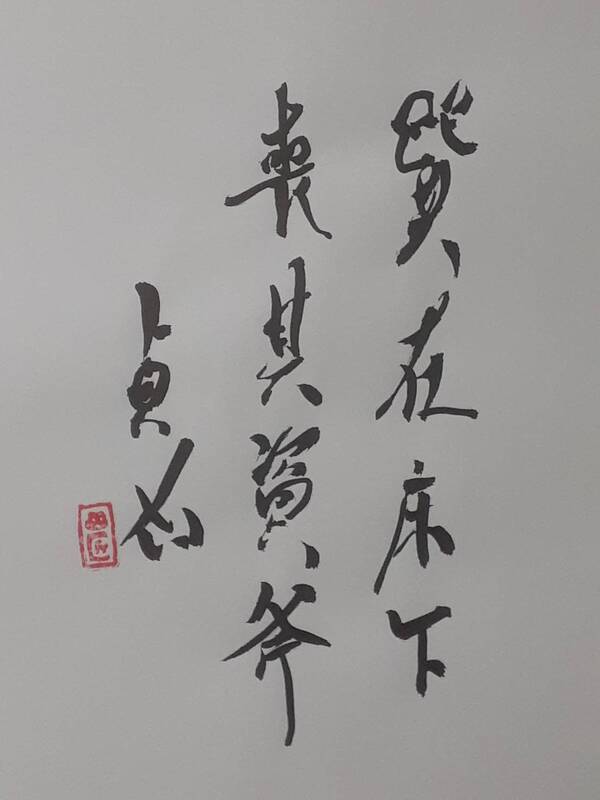 巽在床下
喪其資斧
貞凶